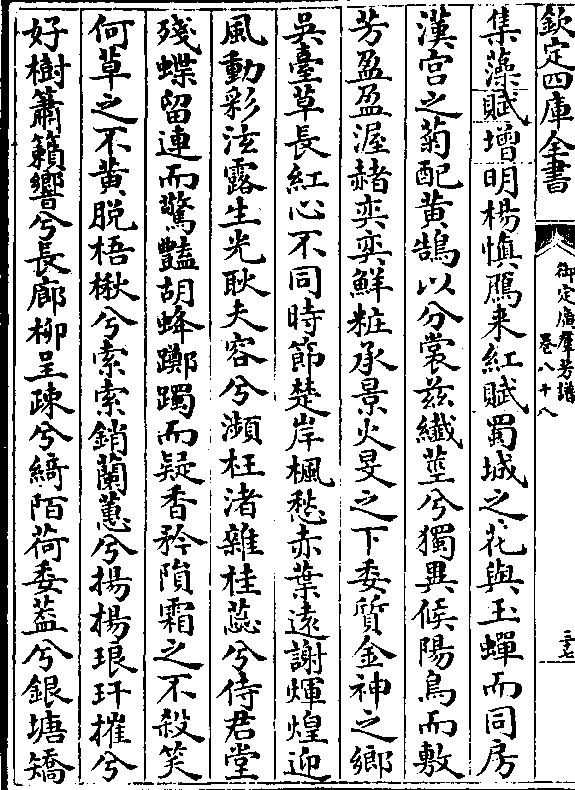 欽定四庫全書
御定廣羣芳譜
卷八十八
集藻賦增明楊慎鴈来紅賦蜀城之花與玉蟬而同房
漢宫之菊配黄鵠以分裳兹纎莖兮獨異候陽鳥而敷
芳盈盈渥赭奕奕鮮粧承景火旻之下委質金神之鄉
吳臺草長紅心不同時節楚岸楓愁赤葉遠謝煇煌迎
風動彩泫露生光耿夫容兮瀕枉渚雜桂蕊兮侍君堂
殘蝶留連而驚豔胡蜂躑躅而疑香矜隕霜之不殺笑
何草之不黄脱梧楸兮索索銷蘭蕙兮揚揚琅玕摧兮
好樹簫籟響兮長廊柳呈疎兮綺陌荷委葢兮銀塘矯